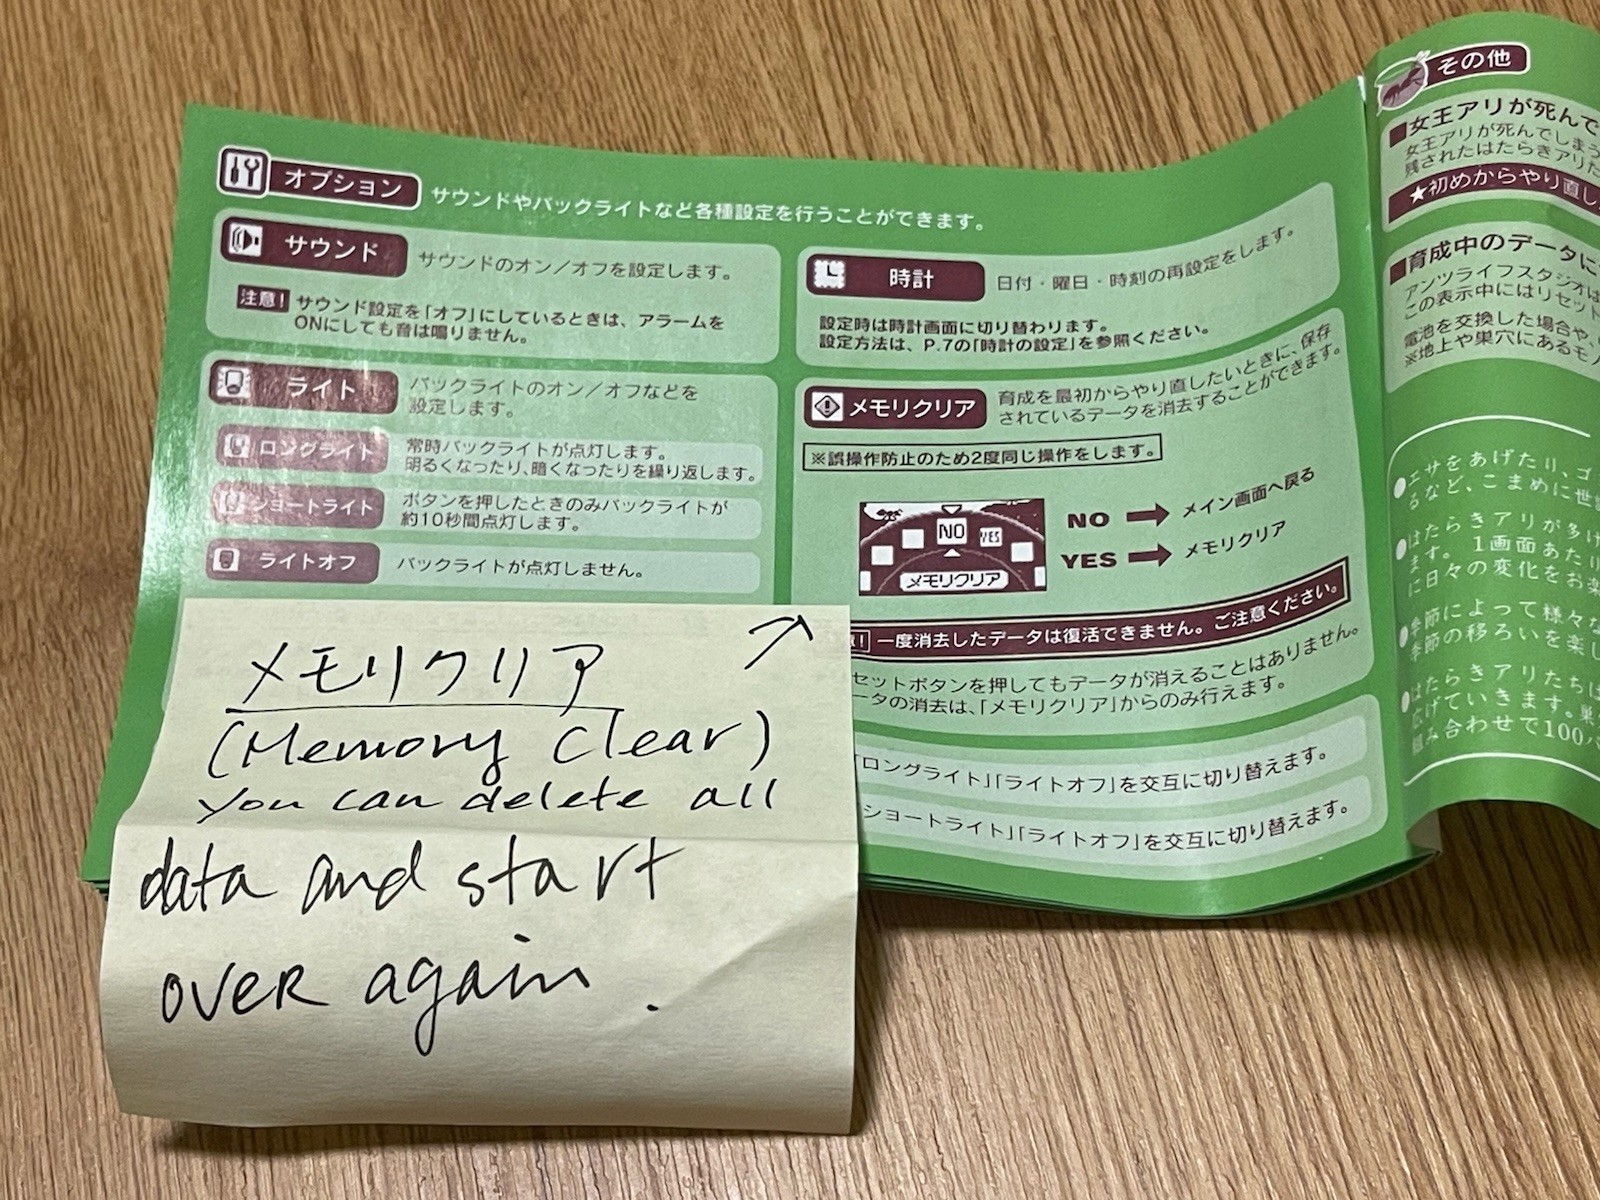 オプション
サウンドやバックライトなど各種設定を行うことができます。
サウンド
サウンドのオン／オフを設定します。
注意!
サウンド設定を「オフ」にしているときは、アラームを
ONにしても音は鳴りません。
ライト
バックライトのオン／オフなどを
設定します。
ロングライト
常時バックライトが点灯します。
明るくなったり、暗くなったりを繰り返します。
ショートライト
ボタンを押したときのみバックライトが
約10秒間点灯します。
ライトオフ
バックライトが点灯しません。
時計
日付・曜日・時刻の再設定をします。
設定時は時計画面に切り替わります。
設定方法は、P.7の「時計の設定」を参照ください。
メモリクリア
育成を最初からやり直したいときに、保存
されているデータを消去することができます。
※誤操作防止のため2度同じ操作をします。
NO YES
メモリクリア
NO → メイン画面へ戻る
YES → メモリクリア
意! 一度消去したデータは復活できません。ご注意ください。
セットボタンを押してもデータが消えることはありません。
ータの消去は、「メモリクリア」からのみ行えます。
「ロングライト」「ライトオフ」を交互に切り替えます。
ショートライト」「ライトオフ」を交互に切り替えます。
メモリクリア
(Memory clear)
you can delete all
data and start
over again.
その他
■女王アリが死んで
女王アリが死んでしまう
残されたはたらきアリた
★初めからやり直し
■育成中のデータに
アンツライフスタジオは
この表示中にはリセット
電池を交換した場合や、
※地上や巣穴にあるモノ
●エサをあげたり、ゴ
るなど、こまめに世
●はたらきアリが多け
ます。1画面あたり
に日々の変化をお楽
●季節によって様々な
季節の移ろいを楽し
●はたらきアリたちは
広げていきます。巣
組み合わせで100